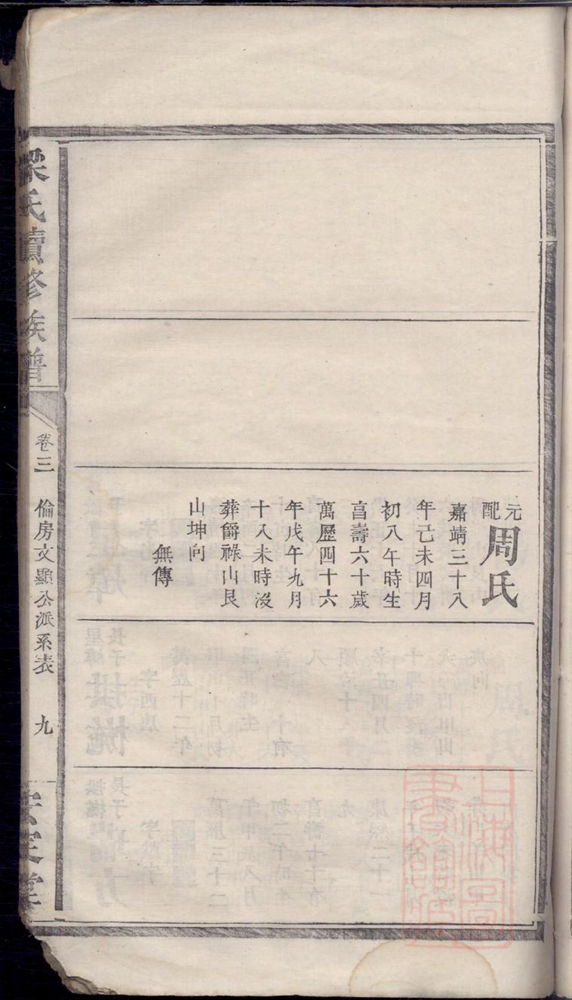 元配周氏
嘉靖三十八
年己未四月
初八午時生
享壽六十歲
萬歷四十六
年戊午九月
十八未時沒
葬爵祿山艮
山坤向
無傳
梁氏續修族譜
卷三
倫房文顯公派系表
九